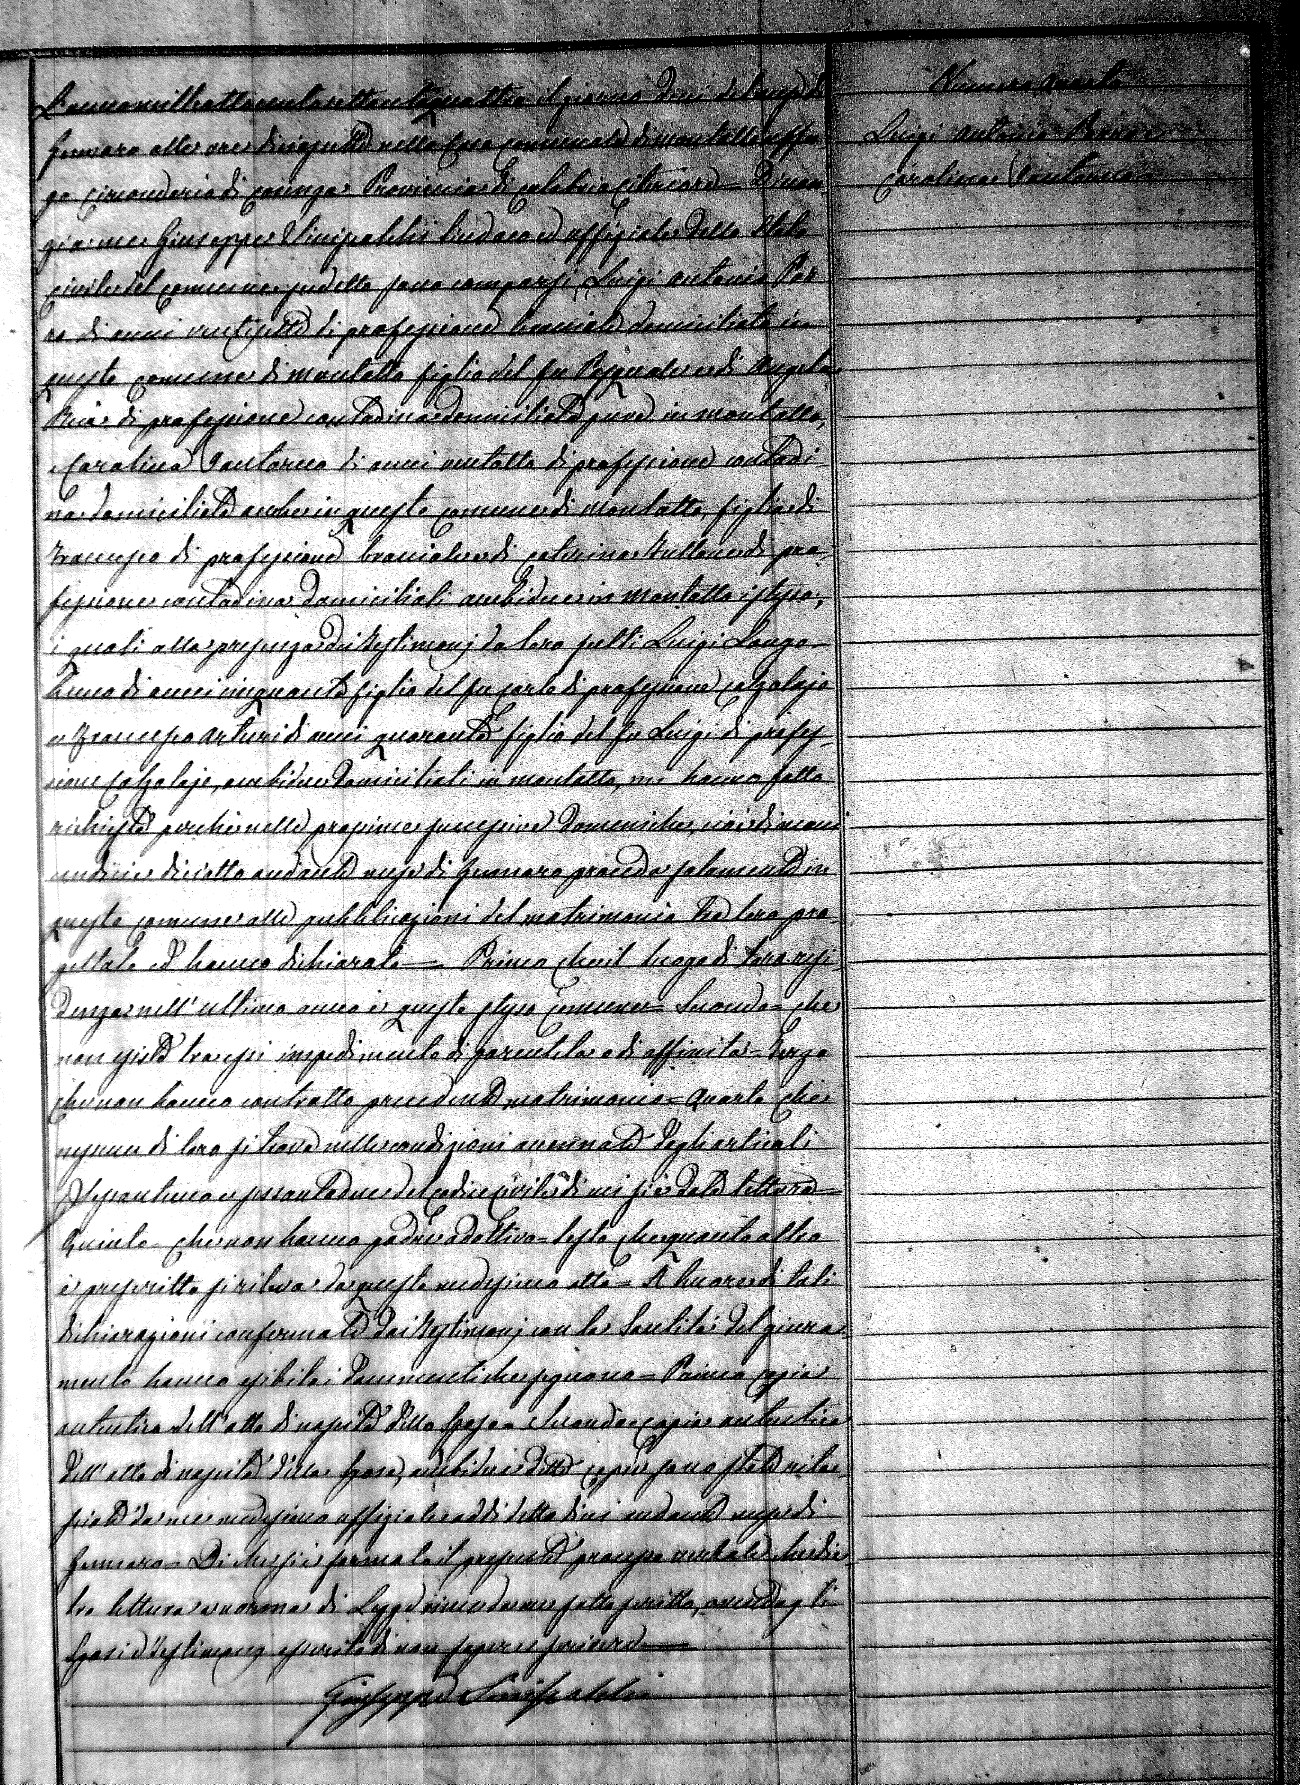 L'anno mille ottocento settantaquattro il giorno dieci del mese di
Gennaro alle ore diciasette nella Casa comunale di Montalto Uffu
go circondario di Cosenza Provincia di Calabria Citeriore = Dinan
zi a me Giuseppe Sinipaldi Sindaco ed uffiziale dello Stato
civile del comune sudetto sono comparsi, Luigi Antonio
di anni ventisette di professione bracciale domiciliato in
questo comune di Montalto figlio del fu Pasquale e di Angela
di professione contadina domiciliata pure in Montalto,
e Carolina di anni ventotto di professione contadi
na domiciliata anche in questo comune di Montalto, figlia di
Francesco di professione bracciale e di Caterina di pro
fessione contadina domiciliati ambidue in Montalto istesso;
i quali alla presenza dei testimonj da loro scelti Luigi Longo
di anni cinquanta figlio del fu Carlo di professione calzolajo
e Francesco Arturi di anni quaranta figlio del fu Luigi di profes
sione calzolajo, ambidue domiciliati in Montalto, mi hanno fatto
richiesta perché nelle prossime successive Domeniche, cioè di
undici e diciotto andante mese di Gennaro proceda solamente in
questo comune alle pubblicazioni del matrimonio tra loro pro
gettato ed hanno dichiarato = Primo che il luogo di loro resi
denza nell'ultimo anno è questo stesso Comune = Secondo = che
non esiste tra essi impedimento di parentela o di affinità = Terzo
che non hanno contratto precedente matrimonio = Quarto che
nessuno di loro si trova nelle condizioni accennate degli articoli
sessantuno e sessantadue del codice civile di cui si è data lettura =
Quinto = che non hanno padre adottivo = Sesto che quanto altro
è prescritto si rileva da questo medesimo atto = A di tali
dichiarazioni confermate dai testimonj con la Santità del giura
mento hanno esibito i documenti che seguono = Primo copia
autentica dell'atto di nascita dello Sposo = Secondo copia autentica
dell'atto di nascita della Sposa, ambidue dette copie sono state rila
sciate da me medesimo uffiziale addì detto dieci andante mese di
Gennaro = Di che si è formato il presente processo verbale che die
tro lettura a norma di Legge viene da me sottoscritto, avendo gli
Sposi e testimonj asserito di non sapere scrivere
Giuseppe Sinipaldi
Numero quarto
Luigi Antonio
Carolina